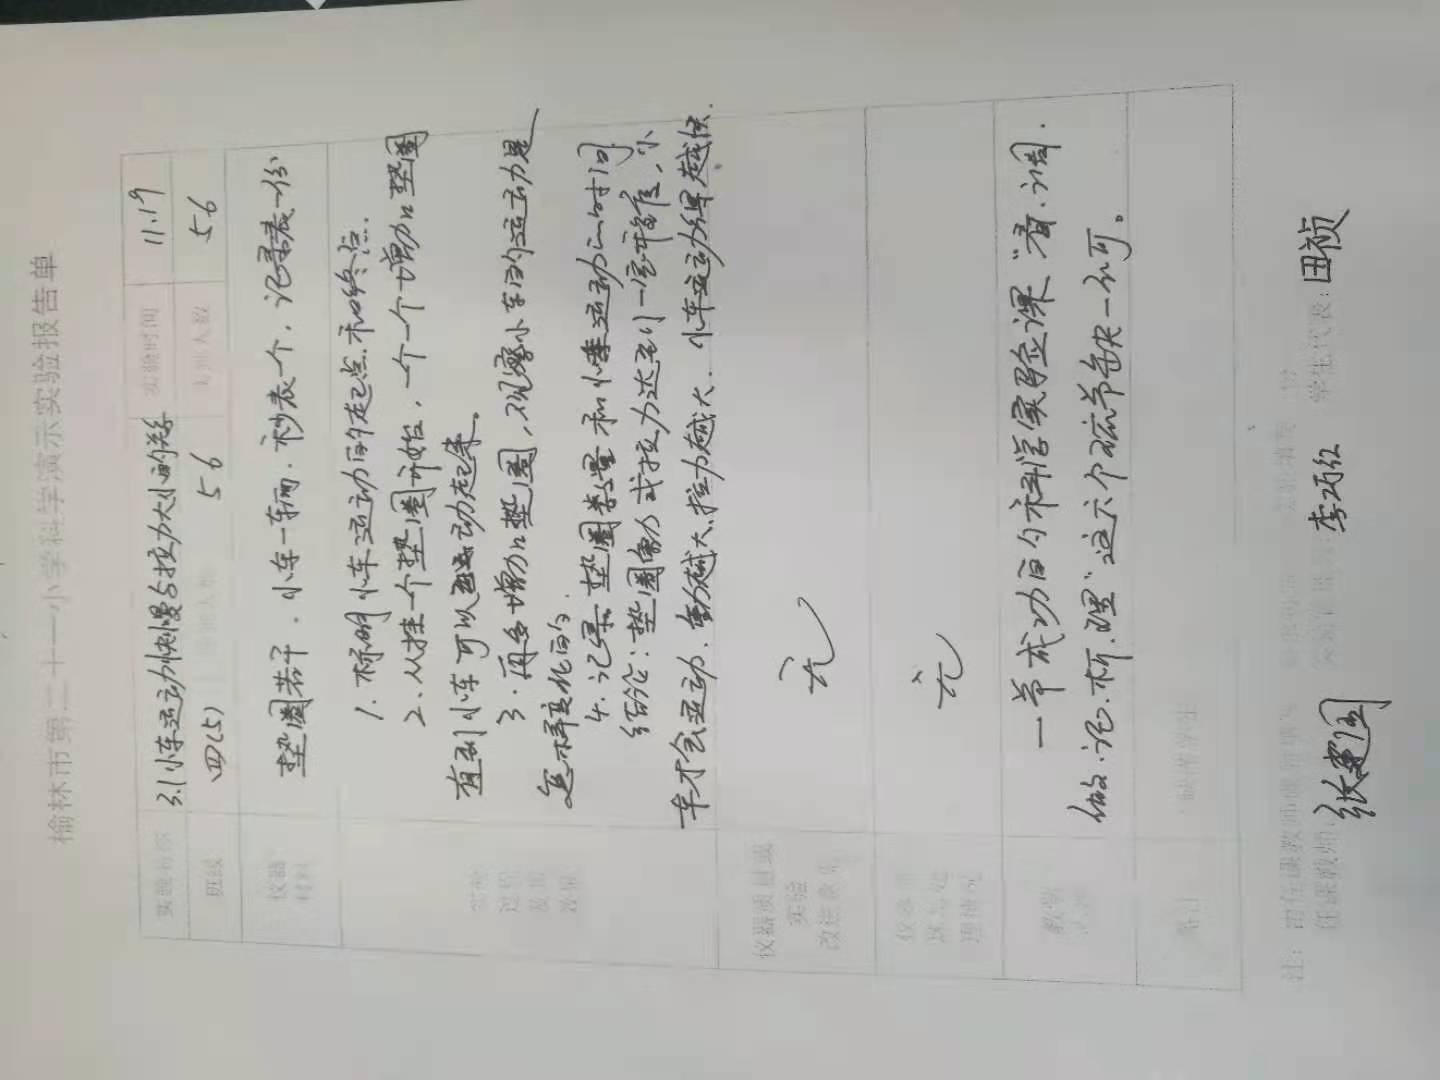 榆林市第二十一小学科学演示实验报告单
实验名称 3.1小车运动快慢与拉力大小的关系 实验时间 11.19
班级 四(5) 56 56
仪器材料 垫圈若干.小车一辆.秒表一个.记录表一份
1.标明小车运动的起点和终点.
2.从挂一个垫圈开始,一个一个增加垫圈
直到小车可以运动起来。
3.再多增加垫圈,观察小车的运动是
怎样变化的.
4.记录垫圈数量和小车运动的时间
结论:垫圈重力或拉力达到一定程度,小
车才会运动.重力越大.拉力越大.小车运动得越快.
仪器质量或
实验
改进意见
无
无
一节成功的科学实验课"看.调.
做.记.析.理"这六个环节缺一不可。
备注
任课教师: 张建国 李巧红 学生代表: 田祯